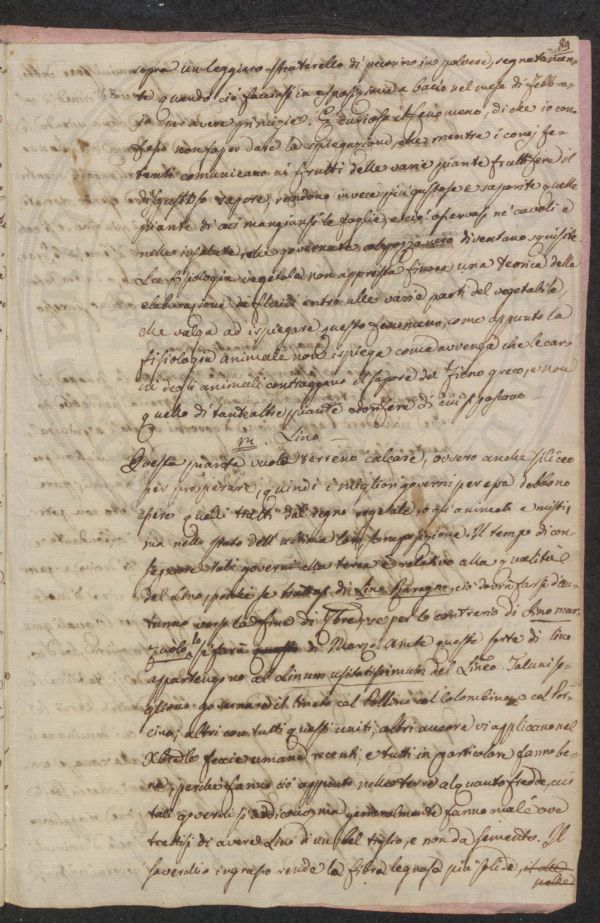 89
sopra un leggiero straterello di pecorino in polvere, segnatamen-
te quando ciò facciasi in esposizione a bacìo nel mese di Febbra-
io per avere primizie. È curioso il fenomeno, di che io con-
fesso non saper dare la spiegazione, che mentre i concj fe-
tenti comunicano ai frutti delle varie piante fruttifere il
disgustoso sapore, rendono invece più gustose e saporite quelle
piante di cui mangiansi le foglie, e ciò osservasi ne' cavoli e
nelle insalate, che governate diventano squisite.
La fisiologia vegetale non appresta finora una teorica della
elaborazione de' fluidi entro alle varie parti del vegetabile,
che valga ad ispiegare questo fenomeno, come appunto la
fisiologia animale non ispiega come avvenga che le car-
ni degli animali contraggano il sapore del fieno greco, e non
quello di tante altre piante odorifere di cui si pascono.
Lino
Questa pianta vuole terreno calcare, ovvero anche siliceo
per prosperare, quindi i migliori governi per essa debbono
essere quelli tratti dal regno vegetale o gli animali e misti,
ma nello stato dell'ultima lor scomposizione. Il tempo di con-
segnare tali governi alla terra è relativo alla qualità
del Lino, poichè se trattasi di Lino Ravagno, ciò dovrà farsi d'au-
tunno verso la fine di 7bre, se per lo contrario di Lino mar-
zuolo, si farà di Marzo. Ambe queste sorte di lino
appartengono al Linum usitatissimum del Linneo. Taluni so-
gliono governare il linato col Pollino col Colombino e col Por-
cino; altri con tutti questi uniti, altri ancora vi applicano nel
Xbre le feccie umane recenti, e tutti in particolare fanno be-
ne, perchè fanno ciò appunto nelle terre alquanto fredde, cui
tali governi si addicono, ma generalmente fanno male ove
trattisi di avere Lino di un bel tiglio, e non da semento. Il
soverchio ingrasso rende la fibra legnosa più solida,